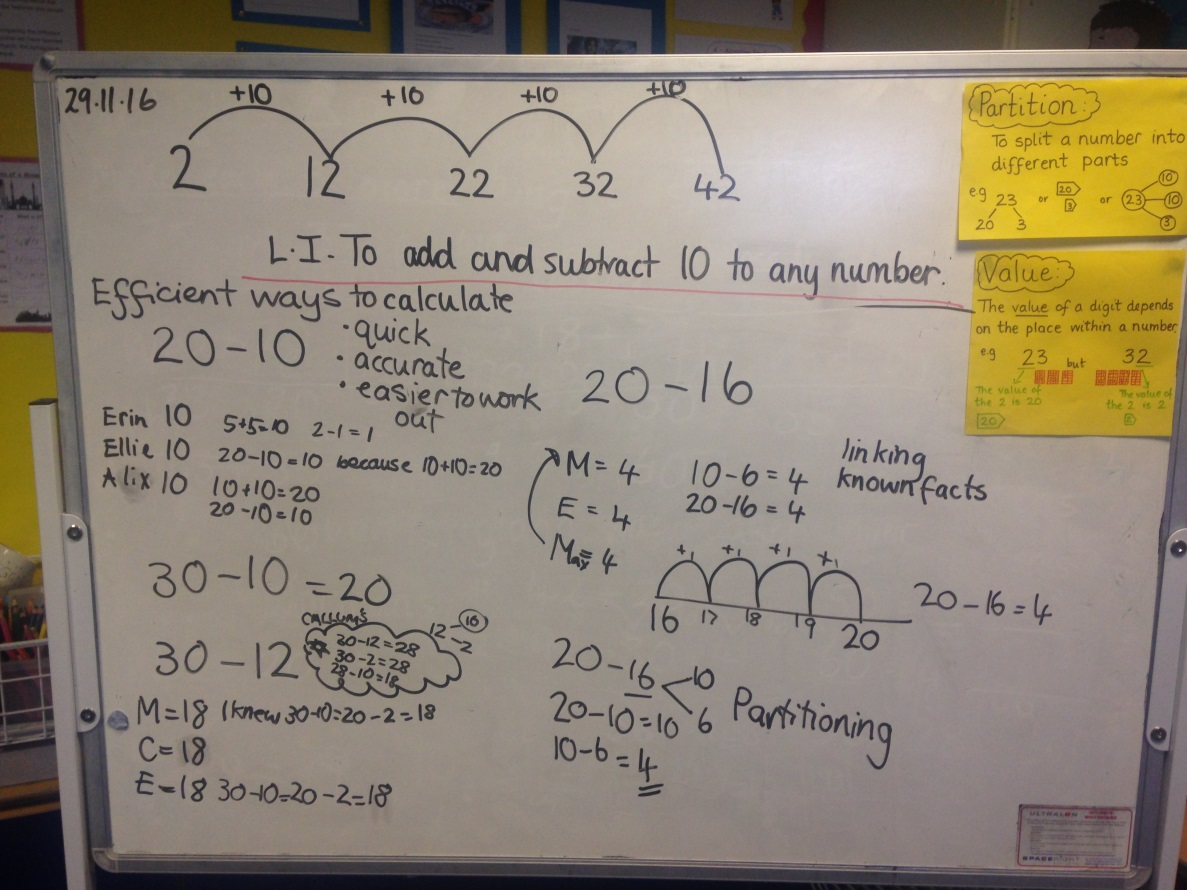 29.11.16
+10 +10 +10 +10
2 12 22 32 42
L.I. To add and subtract 10 to any number.
Efficient ways to calculate
· quick
· accurate
· easier to work
out
20-10
Erin 10 5+5=10 2-1=1
Ellie 10 20-10=10 because 10+10=20
Alix 10 10+10=20
20-10=10
30-10=20
30-12
CALLUM'S
30-12=28
30-2=28
28-10=18
12 10
2
M=18 I knew 30-10=20-2=18
C=18
E=18 30-10=20-2=18
20-16
M=4 10-6=4
E=4 20-16=4
Max=4
linking
known facts
+1 +1 +1 +1
16 17 18 19 20
20-16=4
20-16 10
6
20-10=10
10-6=4
Partitioning
Partition:
To split a number into
different parts
e.g 23 or 20 or 23 10
20 3 3 10
3
Value:
The value of a digit depends
on the place within a number
e.g 23 but 32
The value of
the 2 is 20
20
The value of
the 2 is 2
ULTRALON
SPACERIGHT